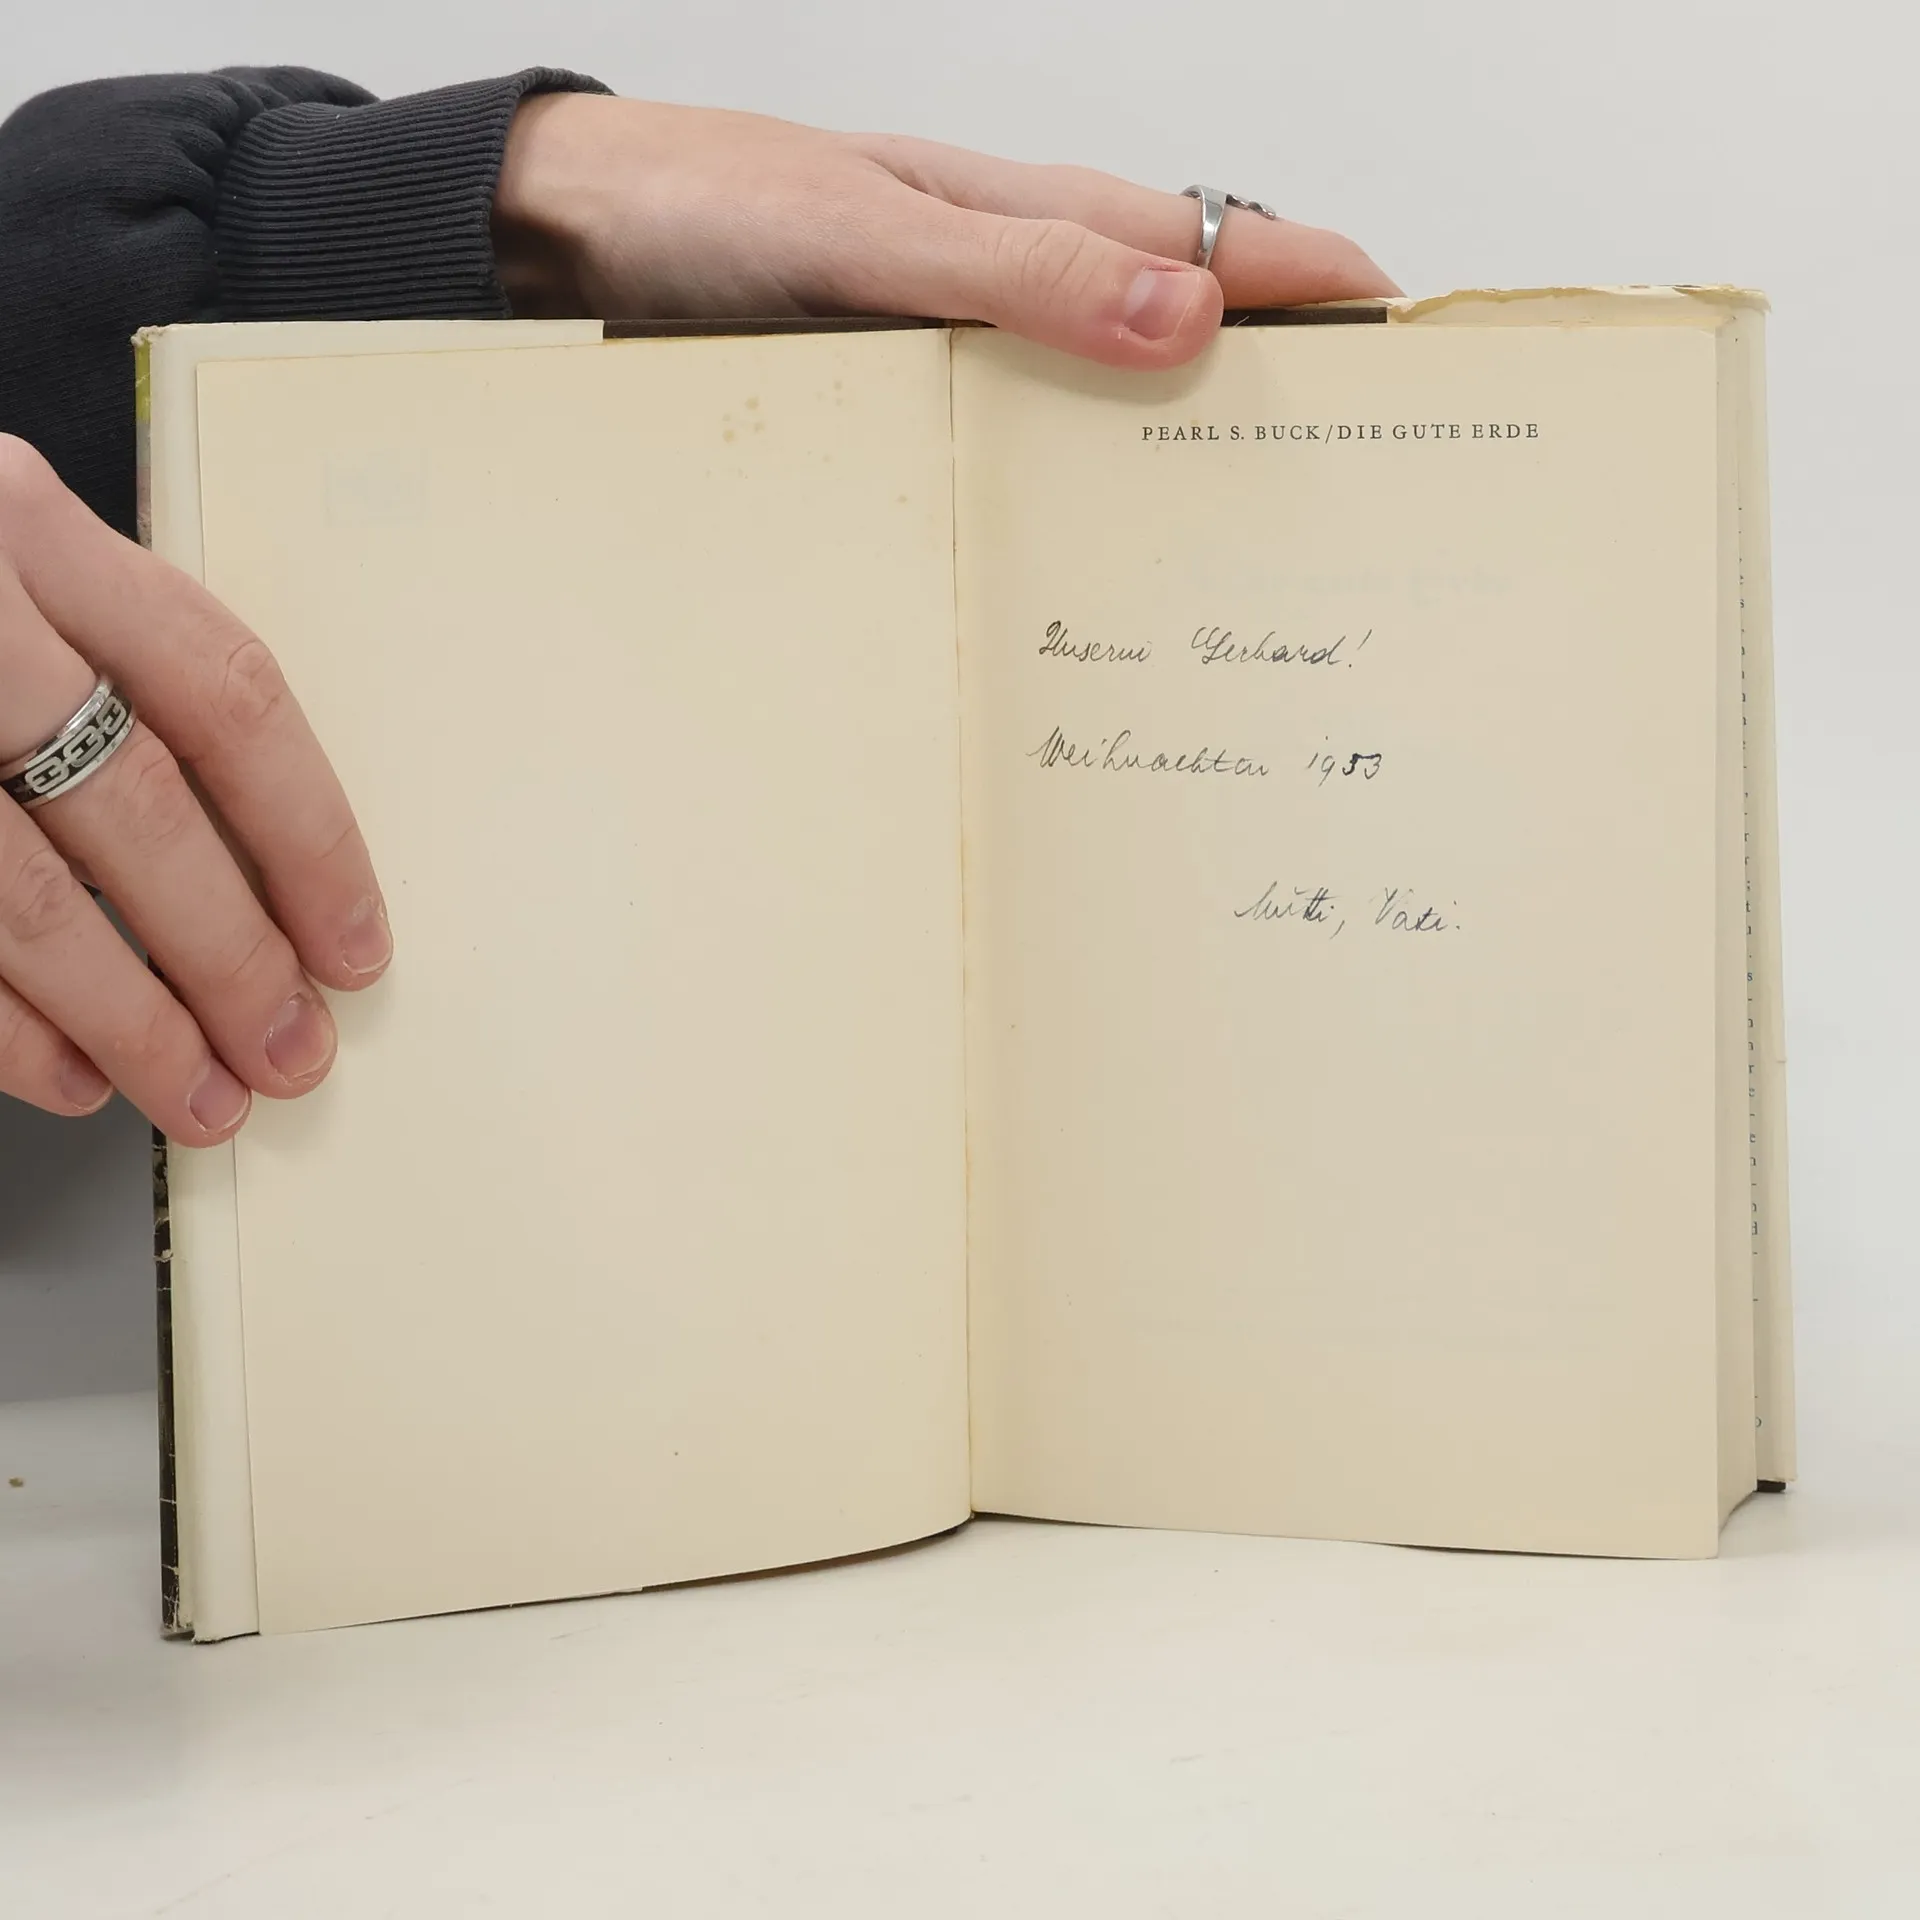 PEARL S. BUCK/DIE GUTE ERDE
Unserm Gerhard!
Weihnachten 1953
Mutti, Vati.